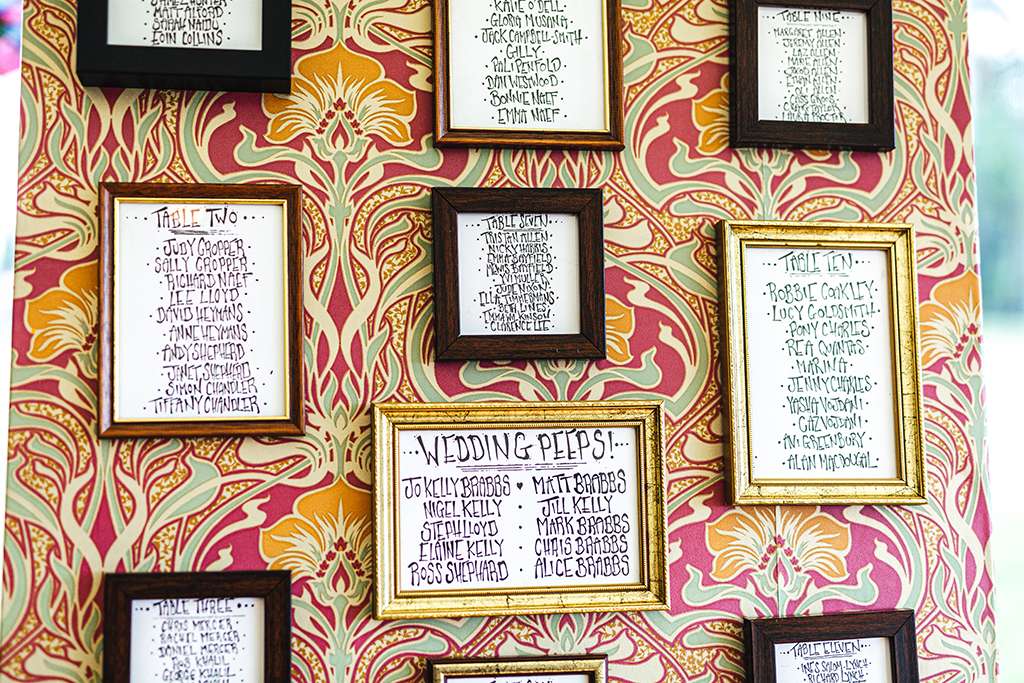 MATT ALFORD
EOIN COLLINS
KATIE O'DELL
GLORIA MUSANA
JACK CAMPBELL-SMITH
SALLY
PALI PENFOLD
DAN WESTWOOD
BONNIE NAEF
EMMA NAEF
TABLE NINE
MARGARET ALLEN
JEREMY ALLEN
LAURA PROCTER
TABLE TWO
JUDY CROPPER
SALLY CROPPER
RICHARD NAEF
LEE LLOYD
DAVID HEYMANS
ANNE HEYMANS
ANDY SHEPHERD
JANET SHEPHERD
SIMON CHANDLER
TIFFANY CHANDLER
TABLE SEVEN
TRISTAN ALLEN
NICKY HARRIS
CLARENCE LEE
TABLE TEN
ROBBIE COAKLEY
LUCY GOLDSMITH
PONY CHARLES
REA QUINTAS
MARINA
JENNY CHARLES
YASHA VOJDANI
CAZ VOJDANI
AVI GREENBURY
ALAN MACDOUGAL
WEDDING PEEPS!
JO KELLY BRABBS ♥ MATT BRABBS
NIGEL KELLY • JILL KELLY
STEPH LLOYD • MARK BRABBS
ELAINE KELLY • CHRIS BRABBS
ROSS SHEPHARD • ALICE BRABBS
TABLE THREE
CHRIS MERCER
RACHEL MERCER
DANIEL MERCER
RAS KHALIL
GEORGE KHALIL
TABLE ELEVEN
INES SALOM-LYNCH
RICHARD LYNCH